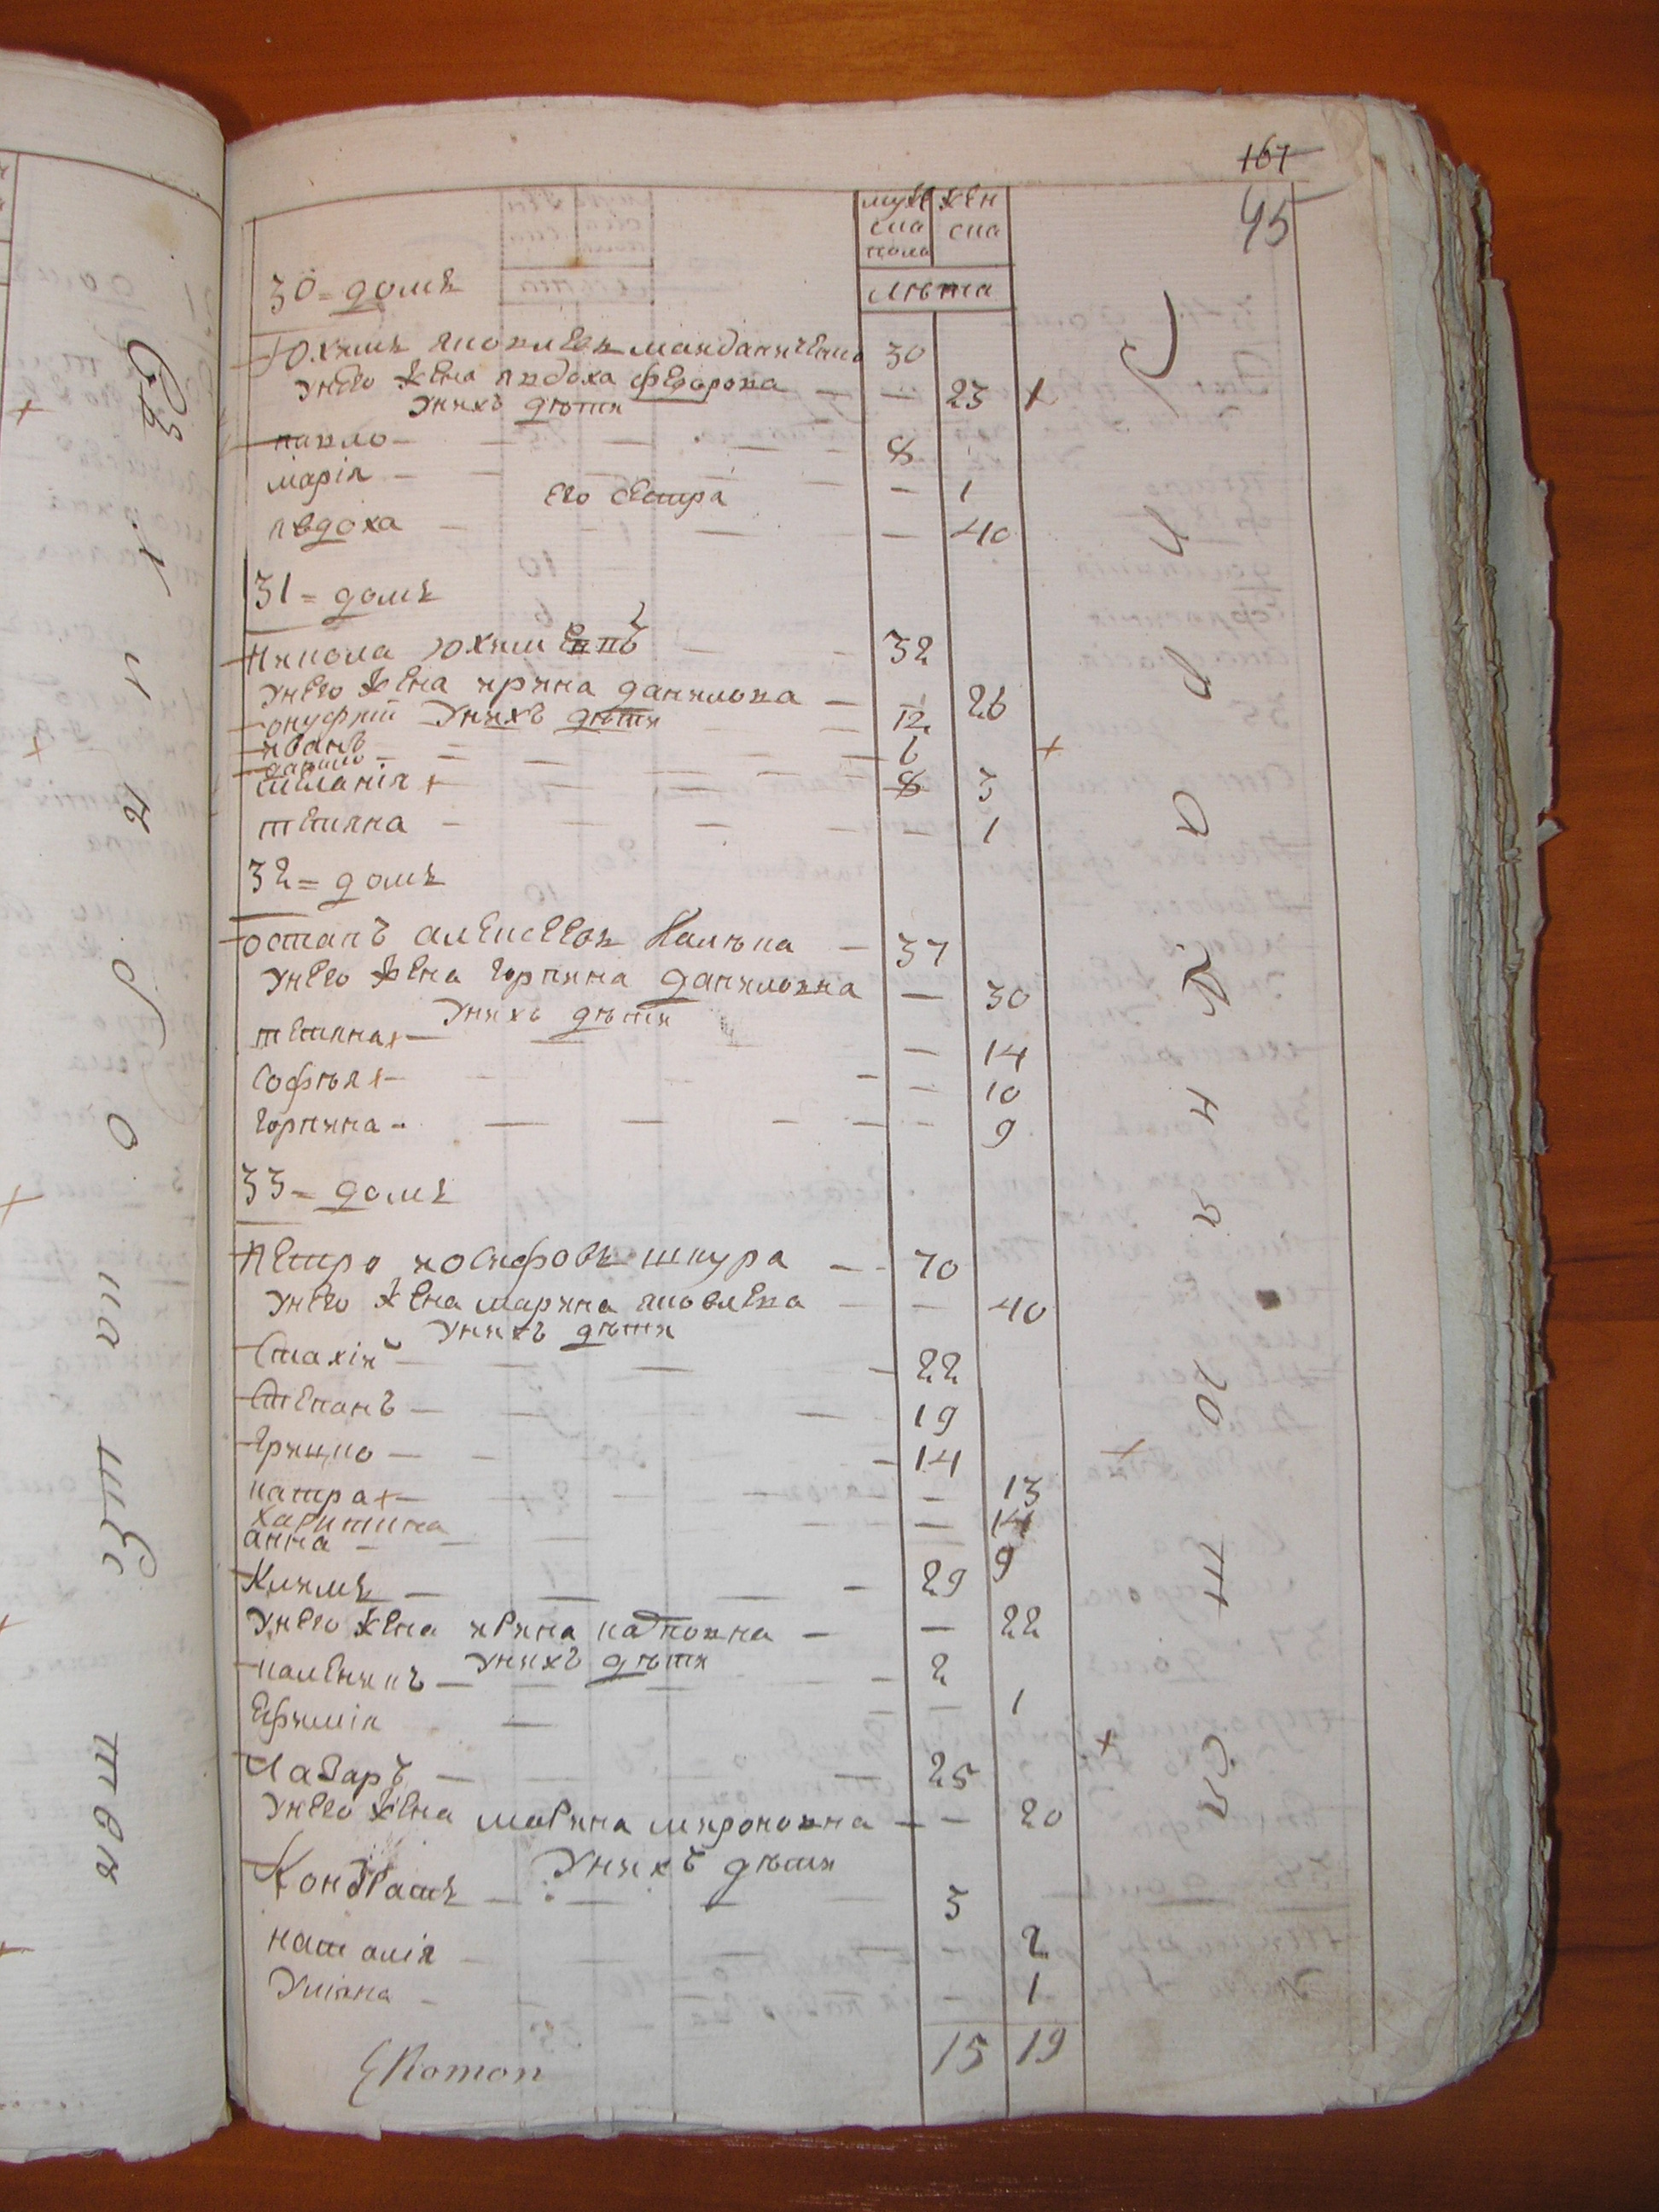 167
45
муже
ска
пола
жен
ска
лѣта
30 = домъ
Юхимъ яковлевъ майданиченко 30
у него жена явдоха федорова — — 23
у нихъ дѣти
павло — 8
марія — — 1
его сестра
явдоха — — 40
31 = домъ
никола юхименко — 32
у него жена ирина данилова — 26
онуфрій у нихъ дѣти 12
иванъ — 6
данило — 8
меланія 3
тетяна — — 1
32 = домъ
остапъ алексеевъ — 37
у него жена горпина даниловна — 30
у нихъ дѣти
тетяна — — 14
софья — — 10
горпина — — 9
33 = домъ
петро иосифовъ шкура — 70
у него жена марина яковлева — — 40
у нихъ дѣти
стахій — 22
степанъ — 19
грицко — 14
катра — — 13
харитина — 14
анна — 9
климъ — 29
у него жена ирина карповна — — 22
у нихъ дѣти
каленикъ — 2
ефимія — — 1
лазаръ — 25
у него жена марина мироновна — — 20
у нихъ дѣти
кондратъ — 3
наталія — 2
уліяна — — 1
15 19